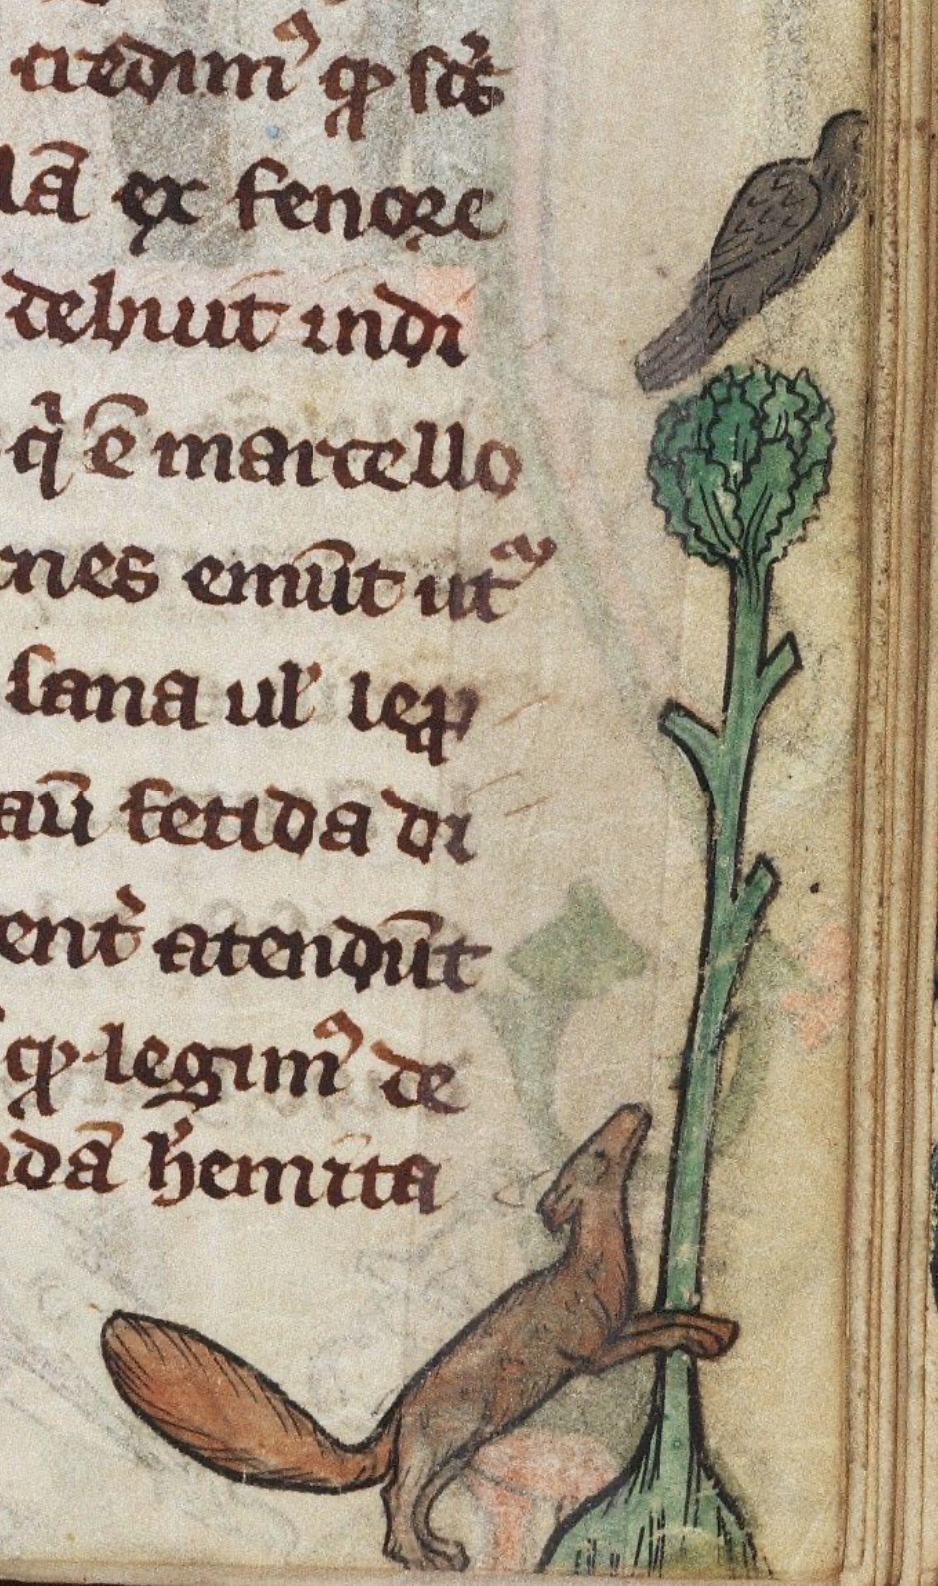 credim᷒ ꝙ sc̃s
lā ex fenore
debuit indi
qͥ ē martello
nes emūt utᷣ
sana ul̕ lep̱
aū fetida di
ent̕ atendūt
ꝙ legim᷒ de
dā h̕emita